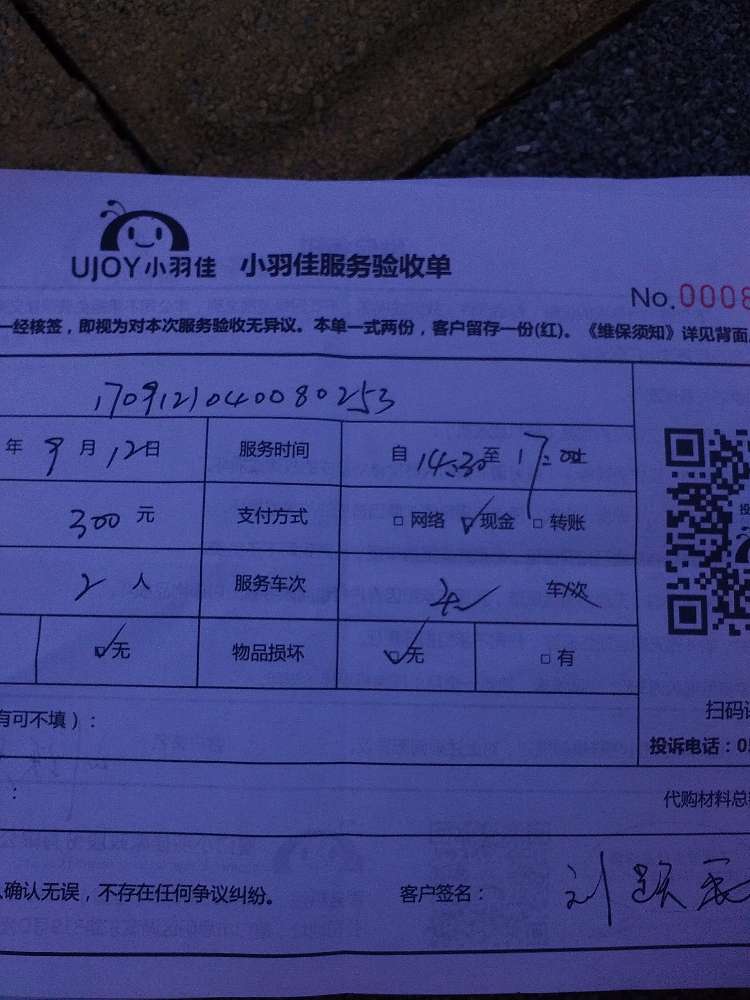 UJOY小羽佳 小羽佳服务验收单
No.0008
一经核签，即视为对本次服务验收无异议。本单一式两份，客户留存一份(红)。《维保须知》详见背面
1709121040080253
年 9 月 12 日 服务时间 自 14:30 至 17:00止
300 元 支付方式 □ 网络 ☑ 现金 □ 转账
2 人 服务车次 车/次
☑无 物品损坏 ☑无 □ 有
有可不填）：
扫码
投诉电话：05
： 代购材料总
确认无误，不存在任何争议纠纷。 客户签名：